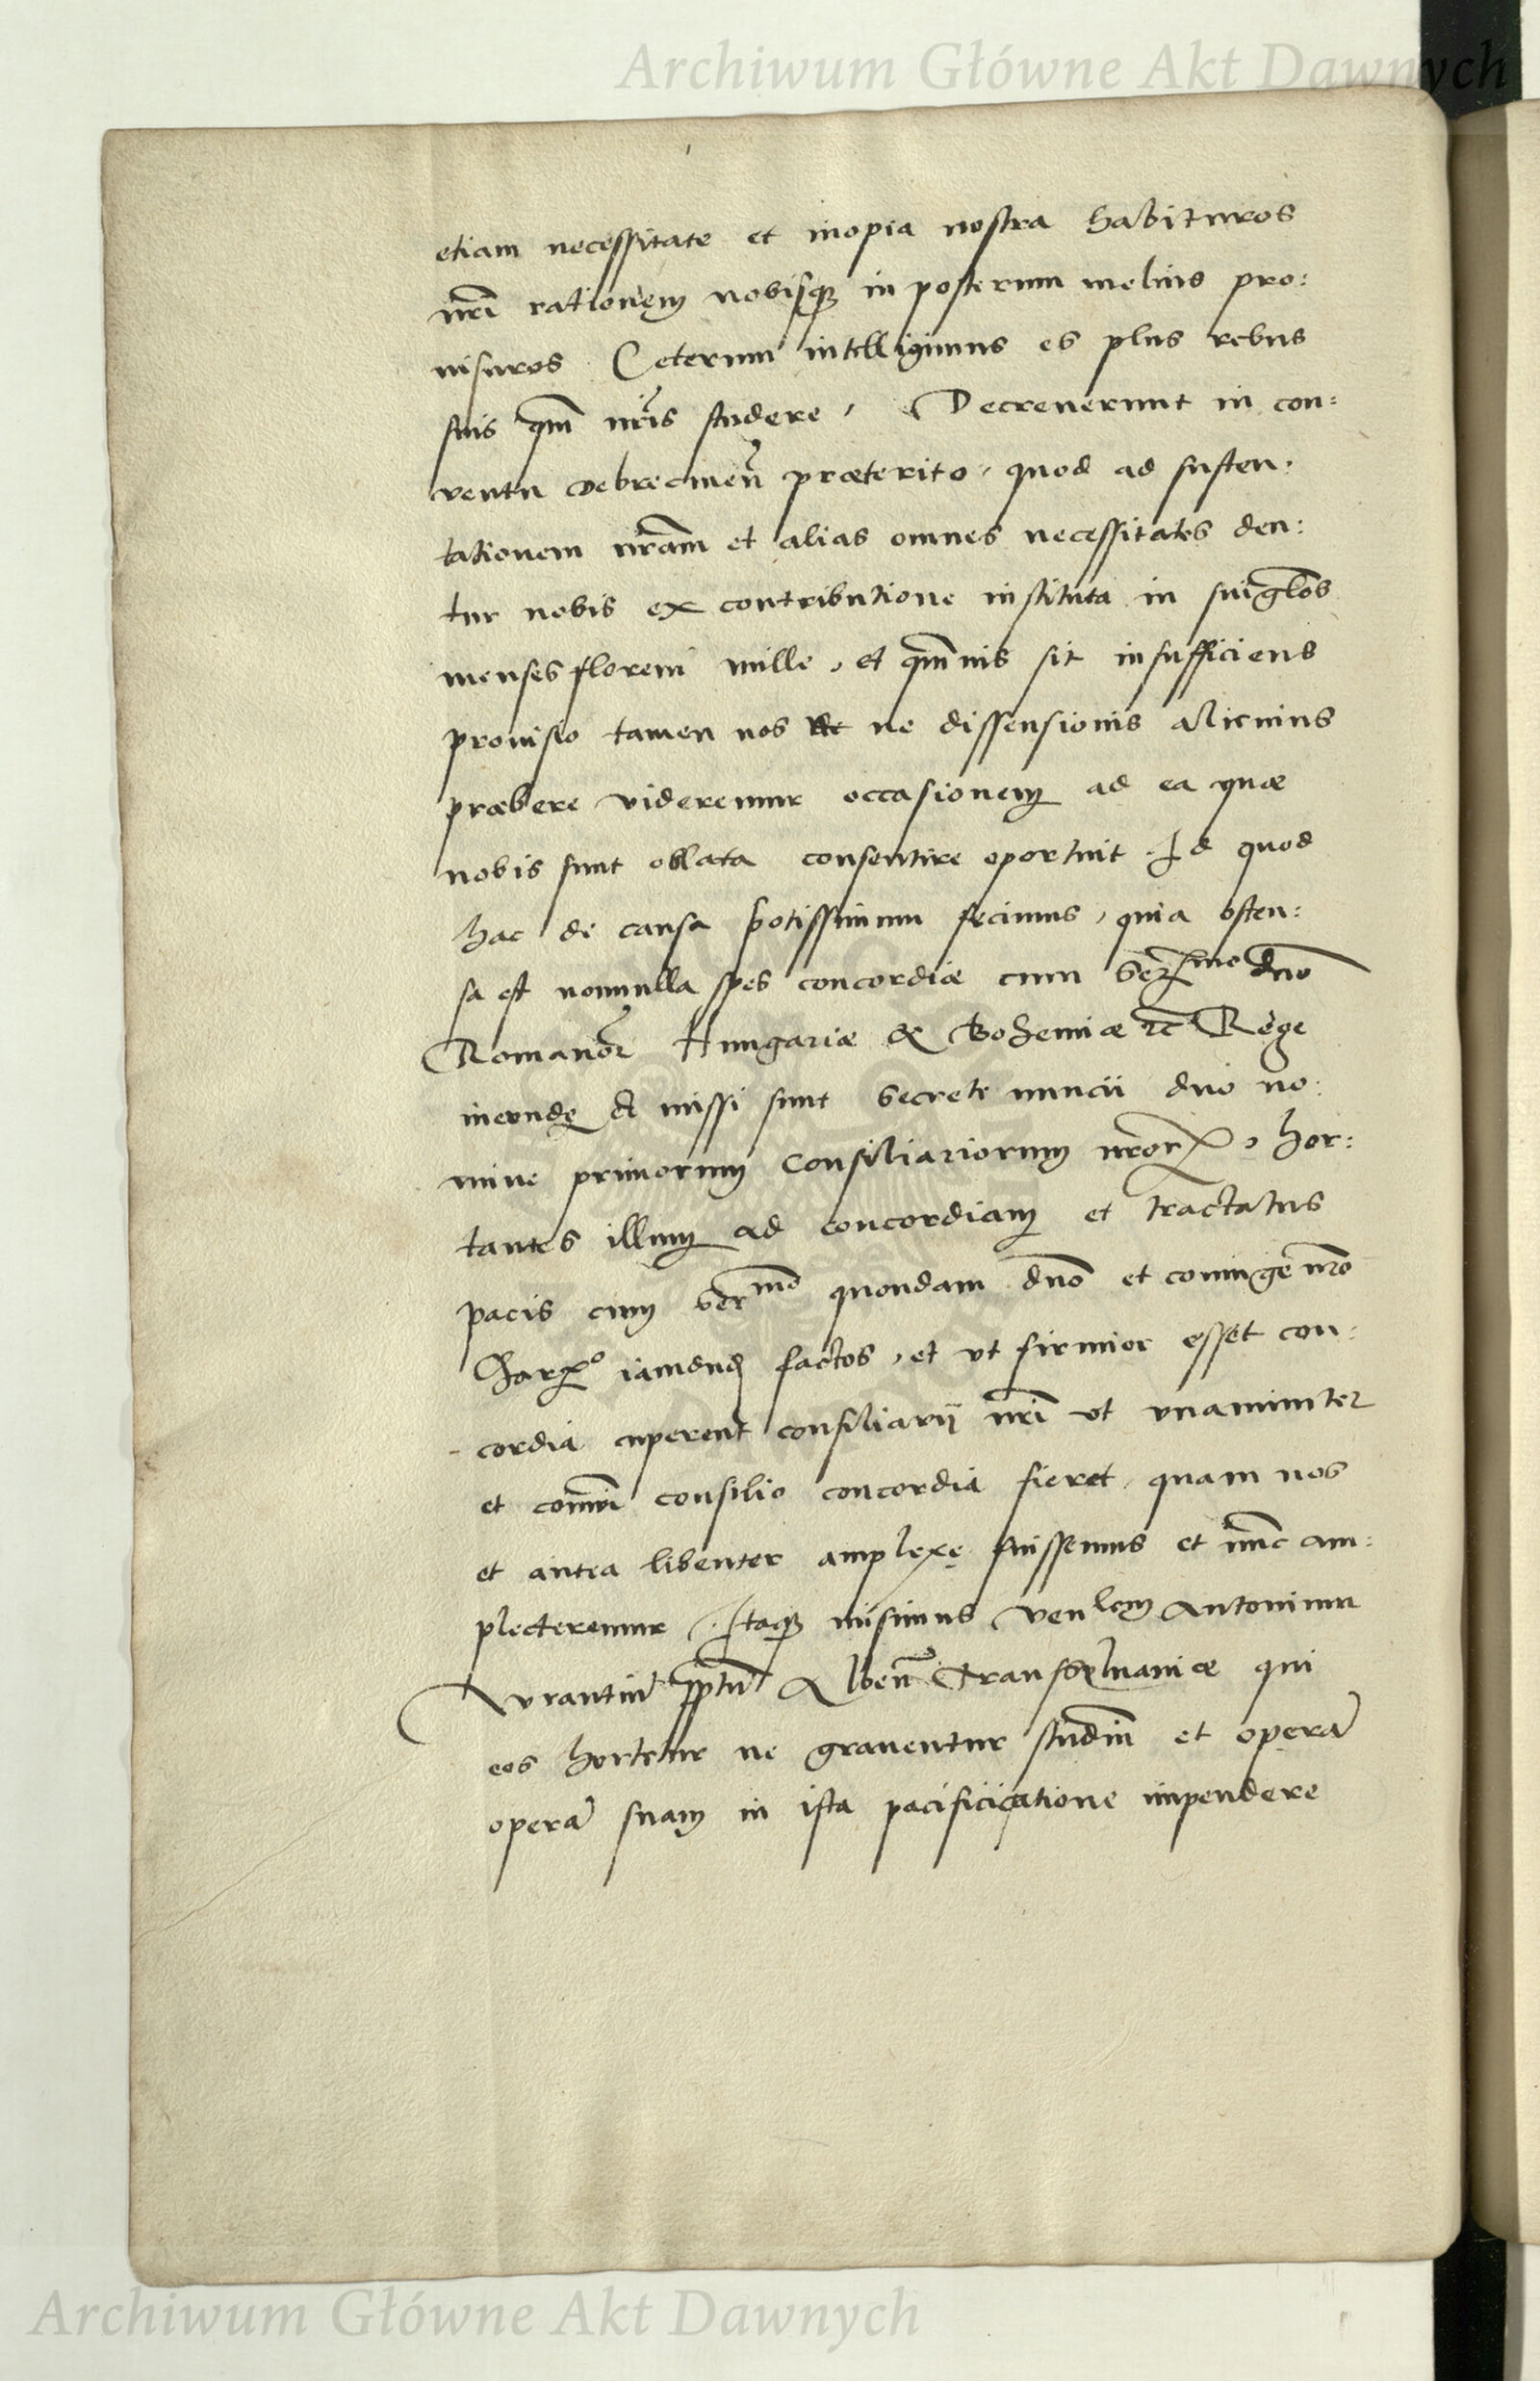 Archiwum Główne Akt Dawnych
etiam necessitate et inopia nostra habituros
nr̃i rationem nobisq̃ in posterum melius pro:
uisuros. Ceterum intelligimus eos plus rebus
suis qm̃ nr̃is studere, Decreuerunt in con:
ventu Debrecineñ præterito, quod ad susten:
tationem nr̃am et alias omnes necessitates den:
tur nobis ex contributione instituta in suiglõs
menses floreni mille, et qm̃uis sit insufficiens
prouisio tamen nos ne dissensionis alicuius
præbere videremur occasionem ad ea quæ
nobis sunt oblata consentire oportuit. Id quod
hac de causa potissimum fecimus, quia osten:
sa est nonnulla spes concordiæ cum Ser^mo dño
Romanor̃ Hungariæ & Bohemiæ etc̃ Rege
ineundę et missi sunt secrete nuncii duo no:
mine primorum Consiliariorum nr̃or, hor:
tantes illum ad concordiam et tractatus
pacis cum Ser^mo quondam dño et coniuge nr̃o
Char^mo iamdud factos, et vt firmior esset con:
cordia cuperent consiliarij nr̃i vt vnanimiter
et com̃ni consilio concordia fieret, quam nos
et antea libenter amplexę fuissemus et nunc am:
plecteremur. Itaq̃ misimus Ven^lem Antonium
Vrantiũ pp̃tũ Albeñ Transsylvaniæ qui
eos hortetur ne grauentur studiũ et operã
operã suam in ista pacificicatione impendere
Archiwum Główne Akt Dawnych